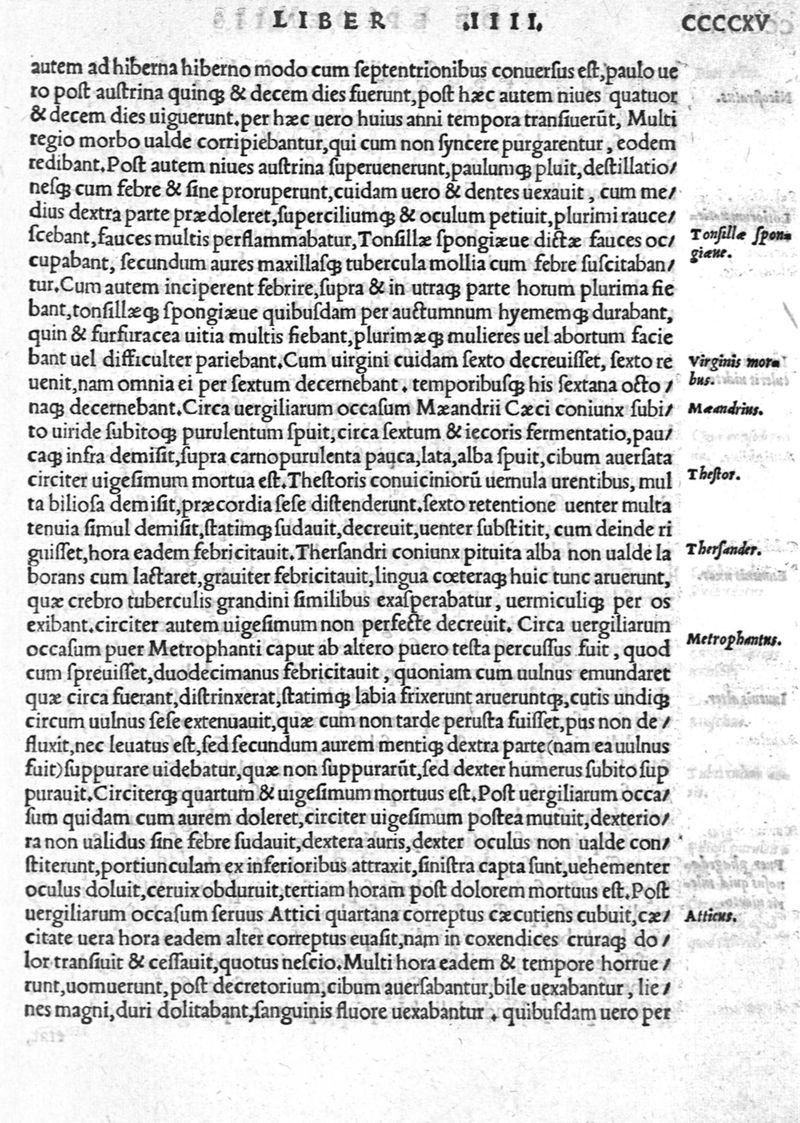 LIBER .IIII. CCCCXV
autem ad hiberna hiberno modo cum ſeptentrionibus conuerſus eſt, paulo ue
ro poſt auſtrina quinqꝫ & decem dies fuerunt, poſt hæc autem niues quatuor
& decem dies uiguerunt. per hæc uero huius anni tempora tranſiuerūt, Multi
regio morbo ualde corripiebantur, qui cum non ſyncere purgarentur, eodem
redibant. Poſt autem niues auſtrina ſuperuenerunt, paulumqꝫ pluit, deſtillatio/
neſqꝫ cum febre & ſine proruperunt, cuidam uero & dentes uexauit, cum me/
dius dextra parte prædoleret, ſuperciliumqꝫ & oculum petiuit, plurimi rauce/
ſcebant, fauces multis perflammabatur, Tonſillæ ſpongiæue dictæ fauces oc/
Tonſillæ ſpon=
giæue.
cupabant, ſecundum aures maxillaſqꝫ tubercula mollia cum febre ſuſcitaban/
tur. Cum autem inciperent febrire, ſupra & in utraqꝫ parte horum plurima fie
bant, tonſillæqꝫ ſpongiæue quibuſdam per auctumnum hyememqꝫ durabant,
quin & furfuracea uitia multis fiebant, plurimæqꝫ mulieres uel abortum facie
bant uel difficulter pariebant. Cum uirgini cuidam ſexto decreuiſſet, ſexto re
Virginis mor=
bus.
uenit, nam omnia ei per ſextum decernebant. temporibuſqꝫ his ſextana octo/
naqꝫ decernebant. Circa uergiliarum occaſum Mæandrii Cæci coniunx ſubi/
Mæandrius.
to uiride ſubitoqꝫ purulentum ſpuit, circa ſextum & iecoris fermentatio, pau/
caqꝫ infra demiſit, ſupra carnopurulenta pauca, lata, alba ſpuit, cibum auerſata
circiter uigeſimum mortua eſt. Theſtoris conuiciniorū uernula urentibus, mul
Theſtor.
ta bilioſa demiſit, præcordia ſeſe diſtenderunt. ſexto retentione uenter multa
tenuia ſimul demiſit, ſtatimqꝫ ſudauit, decreuit, uenter ſubſtitit, cum deinde ri
guiſſet, hora eadem febricitauit. Therſandri coniunx pituita alba non ualde la
Therſander.
borans cum lactaret, grauiter febricitauit, lingua cœteraqꝫ huic tunc aruerunt,
quæ crebro tuberculis grandini ſimilibus exaſperabatur, uermiculiqꝫ per os
exibant. circiter autem uigeſimum non perfecte decreuit. Circa uergiliarum
occaſum puer Metrophanti caput ab altero puero teſta percuſſus fuit, quod
Metrophantus.
cum ſpreuiſſet, duodecimanus febricitauit, quoniam cum uulnus emundaret
quæ circa fuerant, diſtrinxerat, ſtatimqꝫ labia frixerunt arueruntqꝫ, cutis undiqꝫ
circum uulnus ſeſe extenuauit, quæ cum non tarde peruſta fuiſſet, pus non de/
fluxit, nec leuatus eſt, ſed ſecundum aurem mentiqꝫ dextra parte (nam ea uulnus
fuit) ſuppurare uidebatur, quæ non ſuppurarūt, ſed dexter humerus ſubito ſup
purauit. Circiterqꝫ quartum & uigeſimum mortuus eſt. Poſt uergiliarum occa/
ſum quidam cum aurem doleret, circiter uigeſimum poſtea mutuit, dexterio/
ra non ualidus ſine febre ſudauit, dextera auris, dexter oculus non ualde con/
ſtiterunt, portiunculam ex inferioribus attraxit, ſiniſtra capta ſunt, uehementer
oculus doluit, ceruix obduruit, tertiam horam poſt dolorem mortuus eſt. Poſt
uergiliarum occaſum ſeruus Attici quartana correptus cæcutiens cubuit, cæ/
Atticus.
citate uera hora eadem alter correptus euaſit, nam in coxendices cruraqꝫ do/
lor tranſiuit & ceſſauit, quotus neſcio. Multi hora eadem & tempore horrue/
runt, uomuerunt, poſt decretorium, cibum auerſabantur, bile uexabantur, lie/
nes magni, duri dolitabant, ſanguinis fluore uexabantur. quibuſdam uero per